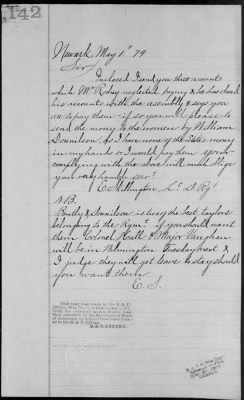 142
Newark May 1st 79
Sir
Inclosed I send you three accounts
which Mr Rodney neglected paying & he has closed
his accounts with the assembly & says you
are to pay them - if so you will please to
send the money to the women by William
Donnilson. As I have none of the States money
in my hands or I would pay them your
complying with the above will much oblige
your very humble servt
Lt D Regt
N.B.
Bently & Donnilson is two of the best taylors
belonging to the Regmt If you should want
them Colonel Hall & Major Vaughan
will be in Wilmington Tuesday next &
I judge they will get leave to stay should
you want them
E. S.
This copy was made in the R & P